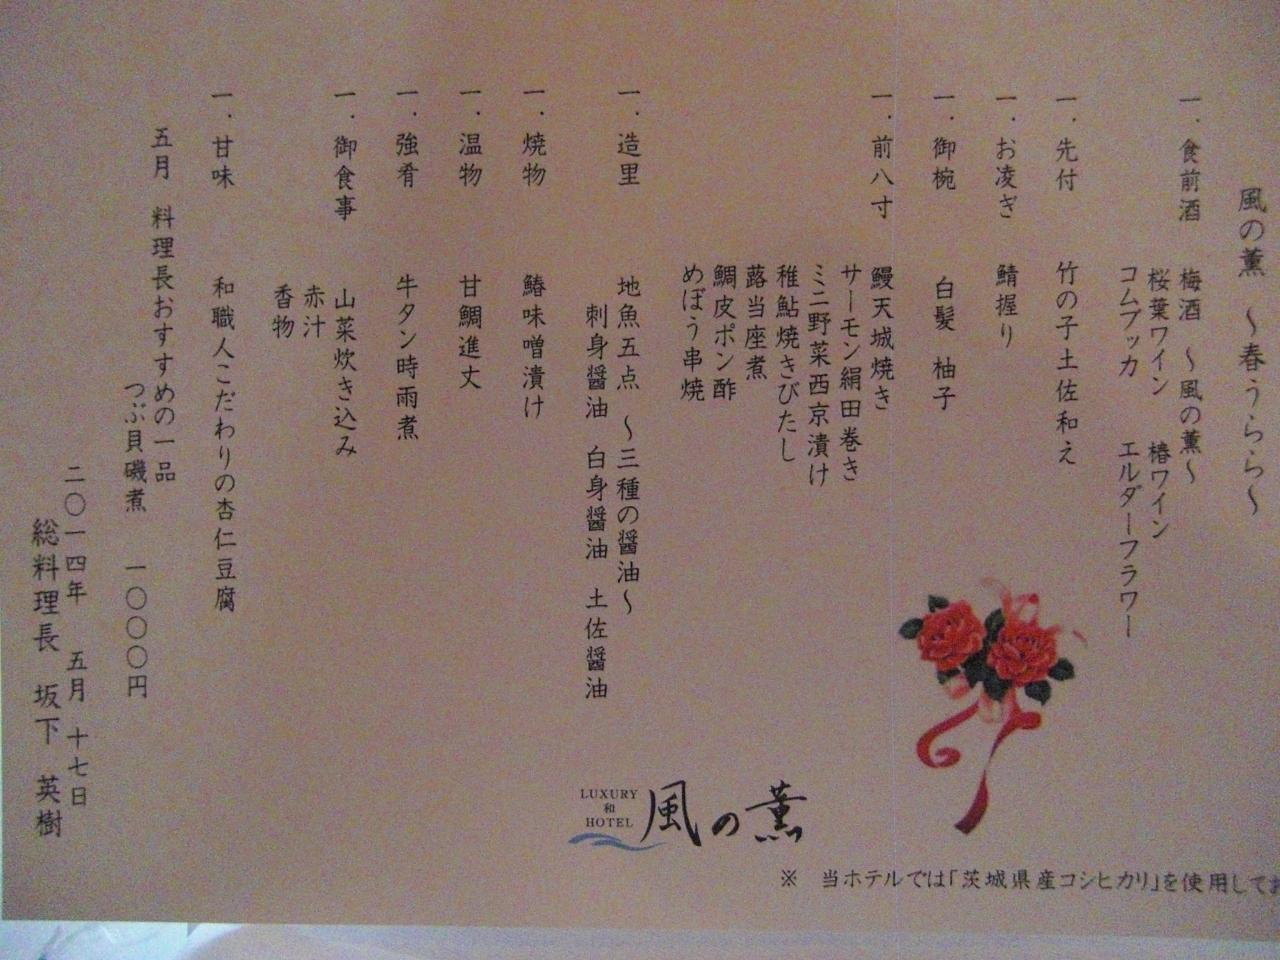 風の薫 ～春うらら～
一．食前酒 梅酒 ～風の薫～
桜葉ワイン 椿ワイン
コムブッカ エルダーフラワー
一．先付 竹の子土佐和え
一．お凌ぎ 鯖握り
一．御椀 白髪 柚子
一．前八寸 鰻天城焼き
サーモン絹田巻き
ミニ野菜西京漬け
稚鮎焼きびたし
蕗当座煮
鯛皮ポン酢
めぼう串焼
一．造里 地魚五点 ～三種の醤油～
刺身醤油 白身醤油 土佐醤油
一．焼物 鰆味噌漬け
一．温物 甘鯛進丈
一．強肴 牛タン時雨煮
一．御食事 山菜炊き込み
赤汁
香物
一．甘味 和職人こだわりの杏仁豆腐
五月 料理長おすすめの一品
つぶ貝磯煮 一〇〇〇円
二〇一四年 五月 十七日
総料理長 坂下 英樹
LUXURY
和
HOTEL
風の薫
※ 当ホテルでは「茨城県産コシヒカリ」を使用してお